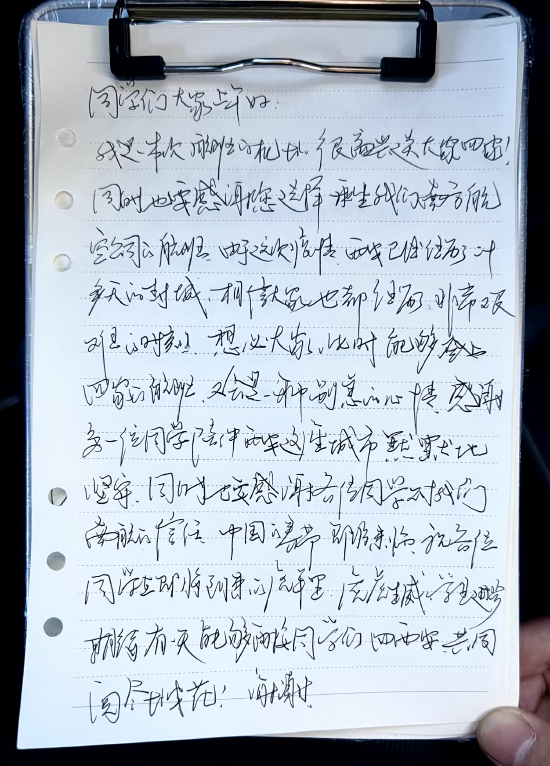 同学们大家上午好：
我是本次航班的机长，很高兴送大家回家！
同时也要感谢您选择乘坐我们南方航
空公司的航班，由于这次疫情 西安已经经历了
多天的封城，相信大家也都经历 非常艰
难的时刻，想必大家此时能够
回家的航班，又会是一种别急的心情，感谢
每一位同学陪伴西安这座城市 默默地
坚守，同时也要感谢各位同学对我们
南航的信任，中国的春节即将来临，祝各位
同学在即将到来的虎年里 虎虎生威，学业
期待有一天能够再接同学们回西安 共同
阅尽长安花！ 谢谢